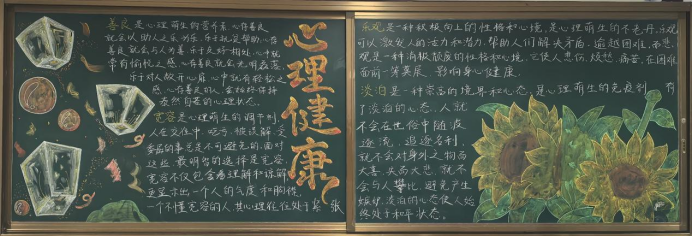 善良是心理萌生的营养素,心存善良,
就会以助人为乐,乐于扶贫帮助,心存
善良,就会与人为善,乐于友好相处,心中就
带有愉悦之感,心存善良,就会光明磊落,
乐于对人敞开心扉,心中就有轻松之
感,心存善良的人,会始终保持
泰然自若的心理状态。
宽容是心理萌生的调节剂,
人在交往中,吃亏、被误解、受
委屈的事总是不可避免的,面对
这些,最明智的选择是宽容。
宽容不仅包含着理解和谅解,
更显示出一个人的气度和胸襟,
一个不懂宽容的人,其心理往往处于紧 张
心理健康
乐观是一种积极向上的性格和心境,是心理萌生的不老丹,乐观
可以激发人的活力和潜力,帮助人们解决矛盾,逾越困难,而悲
观是一种消极颓废的性格和心境,它使人悲伤、烦恼、痛苦,在困难
面前一筹莫展,影响身心健康。
淡泊是一种崇高的境界和心态,是心理萌生的免疫剂 有
了淡泊的心态,人就
不会在世俗中随波
逐流,追逐名利,
就不会对身外之物而
大喜,失而大悲,就不
会与人攀比,避免产生
嫉妒,淡泊的心态使人始
终处于和平状态。